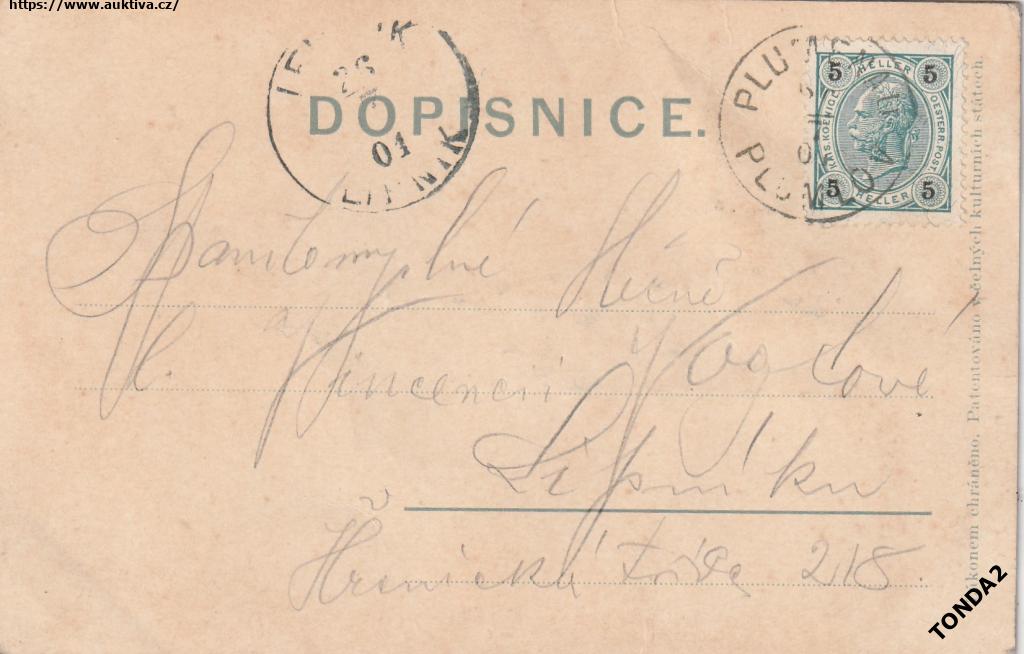 https://www.auktiva.cz/
DOPISNICE.
26
01
LIPNIK
PLUMENAU
PLUMLOV
5 HELLER 5
KAIS. KOENIGL. OESTERR. POST
5 HELLER 5
slečně
Vincencii Voglové
v Lipníku
Hranická třída 218.
konem chráněno. Patentováno v čelných kulturních státech.
TONDA2